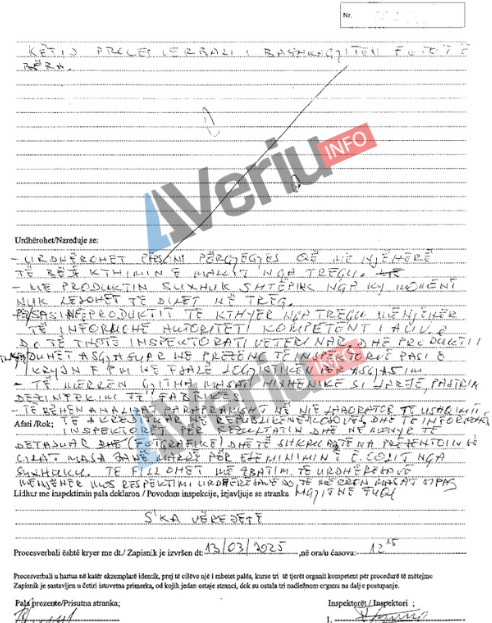 Nr.
KËTIJ PROCES VERBALI I BASHKGJITEN FOTOT E
BËRA.
AVeriu INFO
Urdhërohet/Naređuje se:
- URDHËROHET PERSONI PËRGJEGJËS QË ME NJËHERË
TË BËJË KTHIMIN E MALLIT NGA TREGU.
- ME PRODUKTIN SUXHUK SHTËPIAK NGA KY MOMENT
NUK LEJOHET TË DILET NË TREG.
PRODUKTIT TË KTHYER NGA TREGU MENJËHER
TË INFORMOHE AUTORITETI KOMPETENT I AUV.
D.T.TH TË THOTË INSPEKTORATI VETERINAR DHE PRODUKTI I
DUHET ASGJËSUAR NË PREZENCË TË INSPEKTORVE PASI E
KRYJN
- TË MERREN GJITHA MASAT HIGJIENIKE SI LARJE, PASTRIM
DEZINFEKTIM TË FABRIKËS.
- TË BËHEN ANALIZAT PARAPRAKISHT NË NJË LABORATOR TË USHQIMIT
Afati/Rok:
TË AKREDITUAR NË REPUBLIKËN E KOSOVËS DHE TË INFORMOHE
INSPEKTORËT PËR REZULTATIN DHE NË MËNYR TË
DETAJUAR DHE (FOTOGRAFIKE) DHE TË SHKRUAR TË NA PREZENTOJN NË
CILAT MASA JANË MARRË PËR ELEMINIMIN E E.COLIT NGA
SUXHUKU. TË FILLOHET ME ZBATIM TË URDHËRESAVE
MENJËHER MOS RESPEKTIMI URDHËRESAVE DO TË MERREN MASAT SIPAS
Lidhur me inspektimin pala deklaron / Povodom inspekcije, izjavljuje se stranka LIGJIT NË FUQI
S'KA VËREJTJE
Procesverbali është kryer me dt./ Zapisnik je izvršen dt: 13/03/2025 , në ora/u ćasova: 12 15
Procesverbali u hartua në katër ekzemplarë identik, prej të cilëve një i mbetet palës, kurse tri të tjerët organit kompetent për procedurë të mëtejme
Zapisnik je sastavljen u četiri istovetna primerka, od kojih jedan ostaje stranci, dok su ostala tri nadležnom organu na dalje postupanje.
Pala prezente/Prisutna stranka;
Inspektorët / Inspektori ;
1.